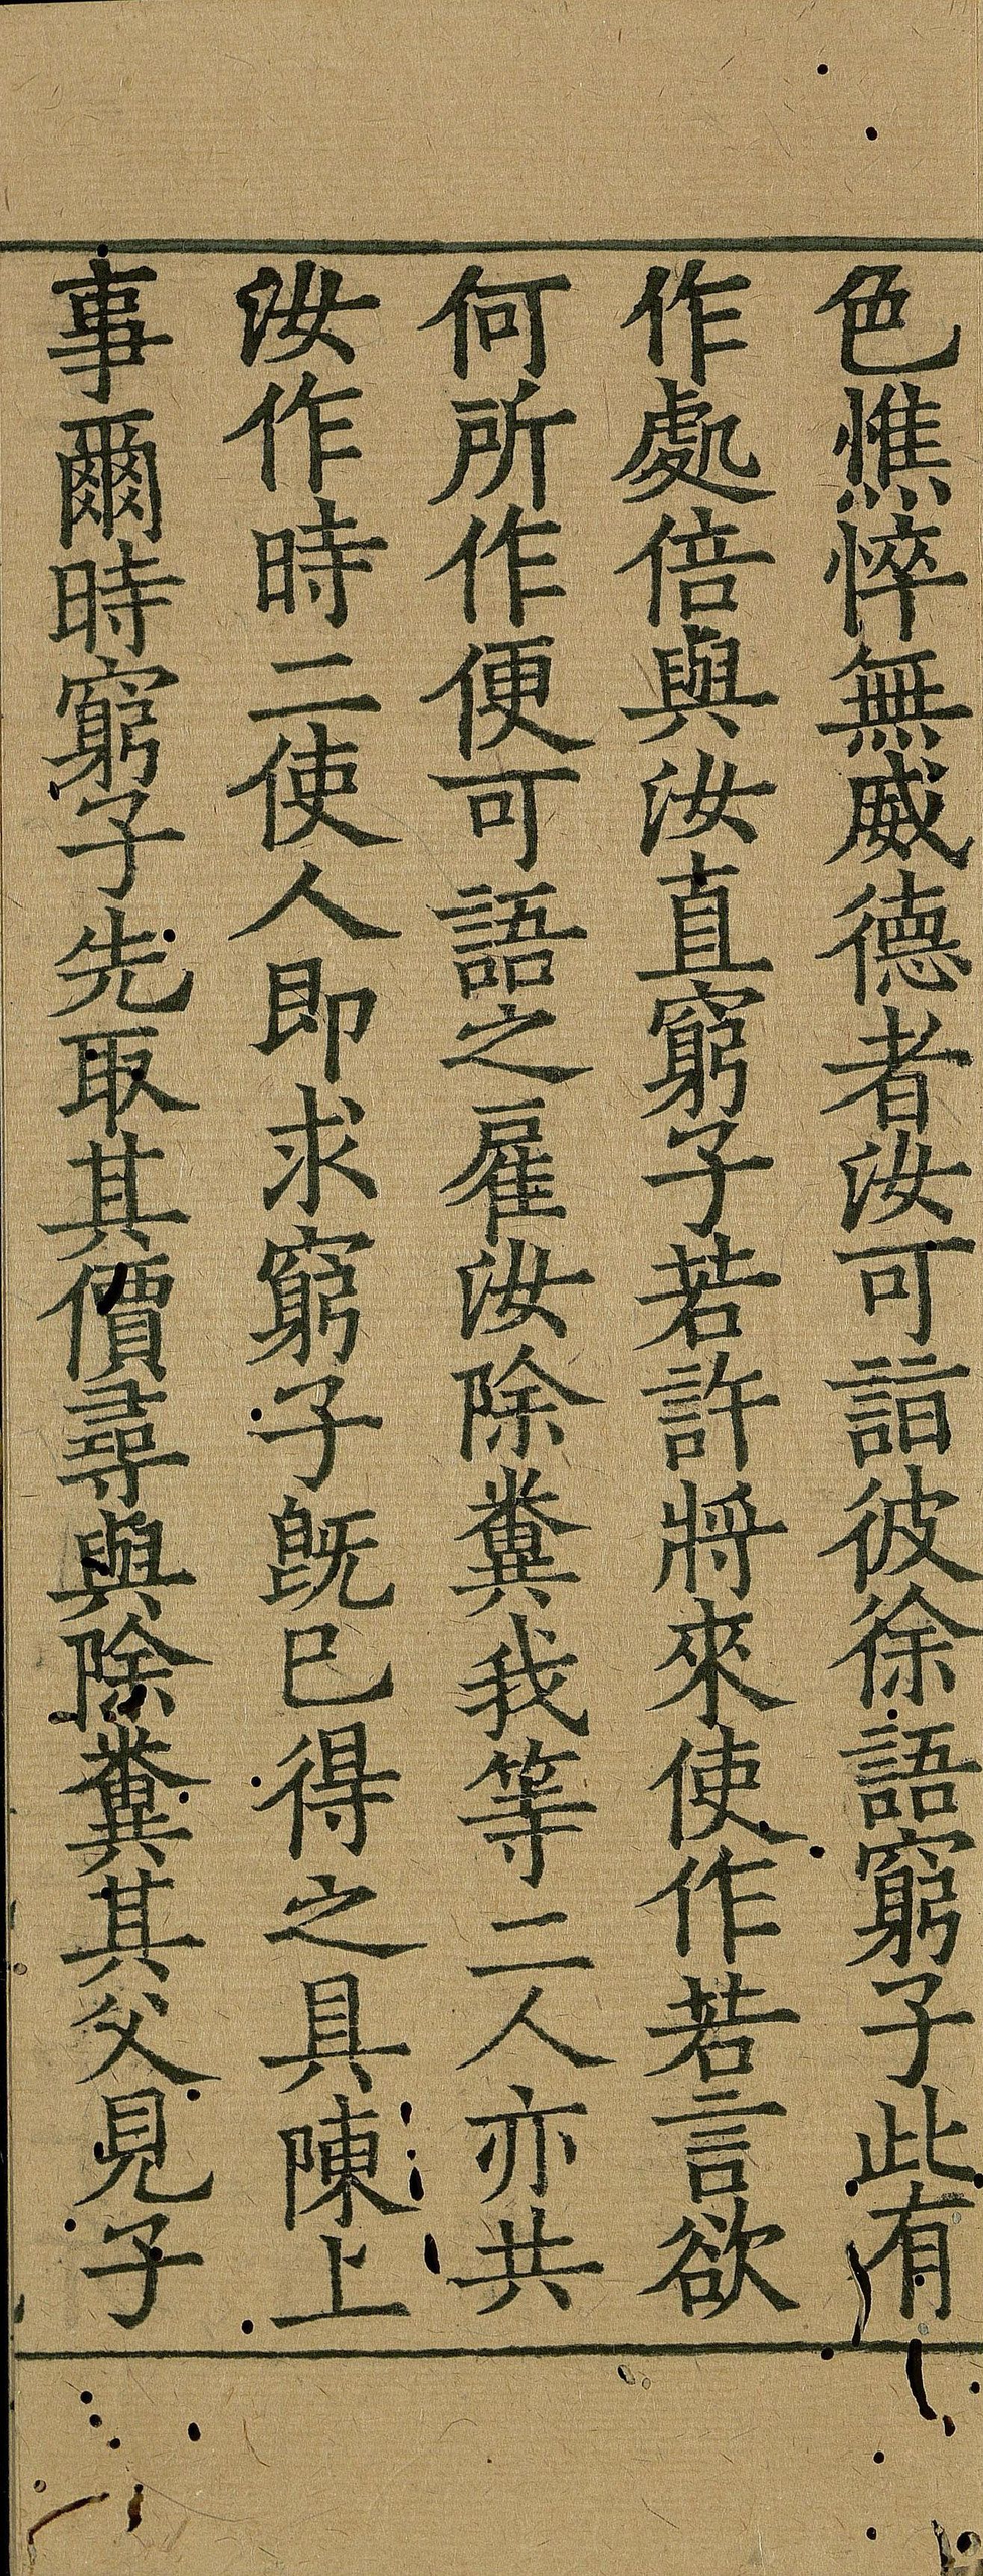 色憔悴無威德者汝可詣彼徐語窮子此有
作處倍與汝直窮子若許將來使作若言欲
何所作便可語之雇汝除糞我等二人亦共
汝作時二使人即求窮子既已得之具陳上
事爾時窮子先取其價尋與除糞其父見子